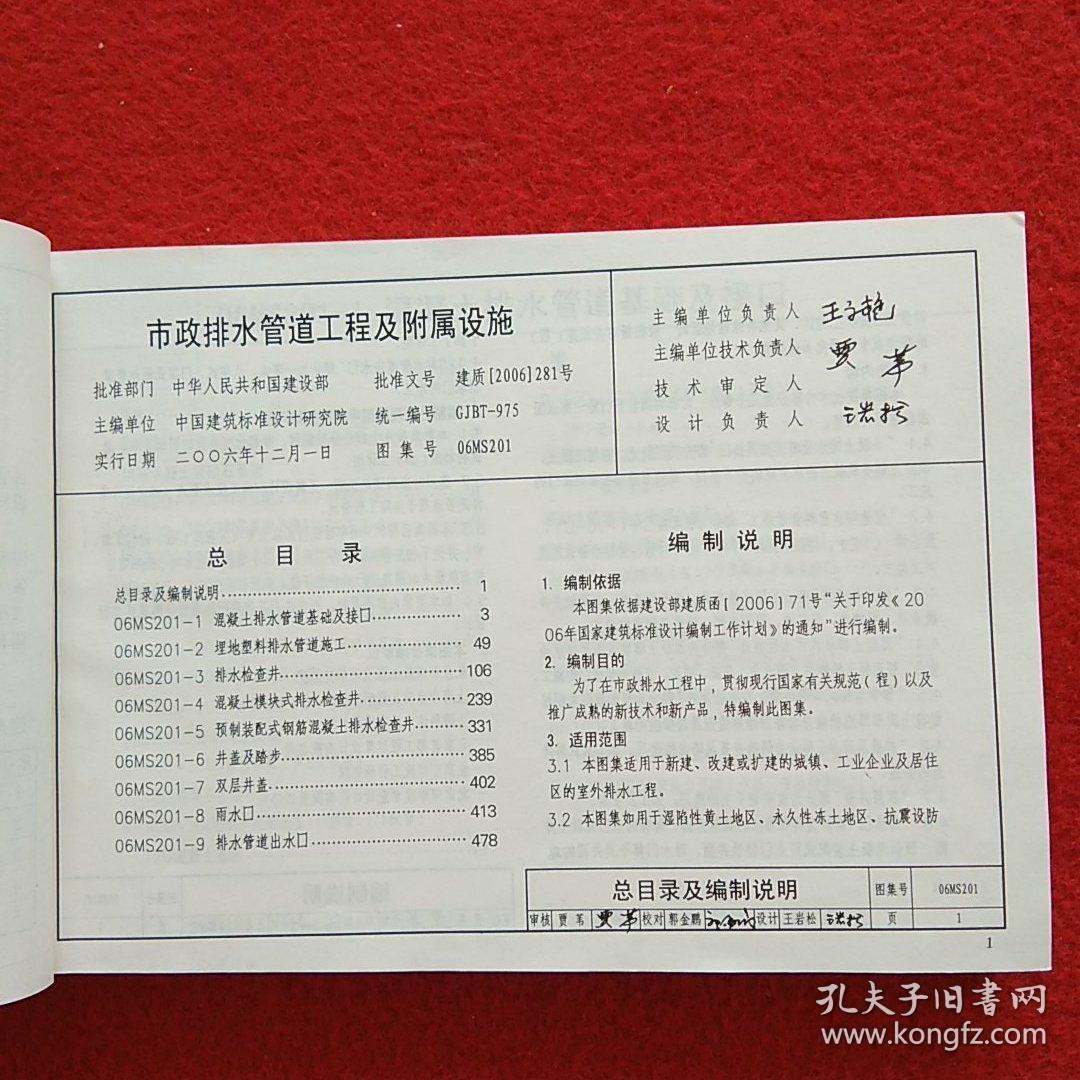 市政排水管道工程及附属设施
批准部门 中华人民共和国建设部 批准文号 建质[2006]281号
主编单位 中国建筑标准设计研究院 统一编号 GJBT-975
实行日期 二〇〇六年十二月一日 图集号 06MS201
主编单位负责人
主编单位技术负责人 贾苇
技术审定人
设计负责人
总目录
总目录及编制说明 1
06MS201-1 混凝土排水管道基础及接口 3
06MS201-2 埋地塑料排水管道施工 49
06MS201-3 排水检查井 106
06MS201-4 混凝土模块式排水检查井 239
06MS201-5 预制装配式钢筋混凝土排水检查井 331
06MS201-6 井盖及踏步 385
06MS201-7 双层井盖 402
06MS201-8 雨水口 413
06MS201-9 排水管道出水口 478
编制说明
1. 编制依据
本图集依据建设部建质函[2006]71号“关于印发《20
06年国家建筑标准设计编制工作计划》的通知”进行编制。
2. 编制目的
为了在市政排水工程中，贯彻现行国家有关规范(程)以及
推广成熟的新技术和新产品，特编制此图集。
3. 适用范围
3.1 本图集适用于新建、改建或扩建的城镇、工业企业及居住
区的室外排水工程。
3.2 本图集如用于湿陷性黄土地区、永久性冻土地区、抗震设防
总目录及编制说明 图集号 06MS201
审核 贾苇 贾苇 校对 郭金鹏 设计 王岩松 页 1
1
孔夫子旧书网
www.kongfz.com